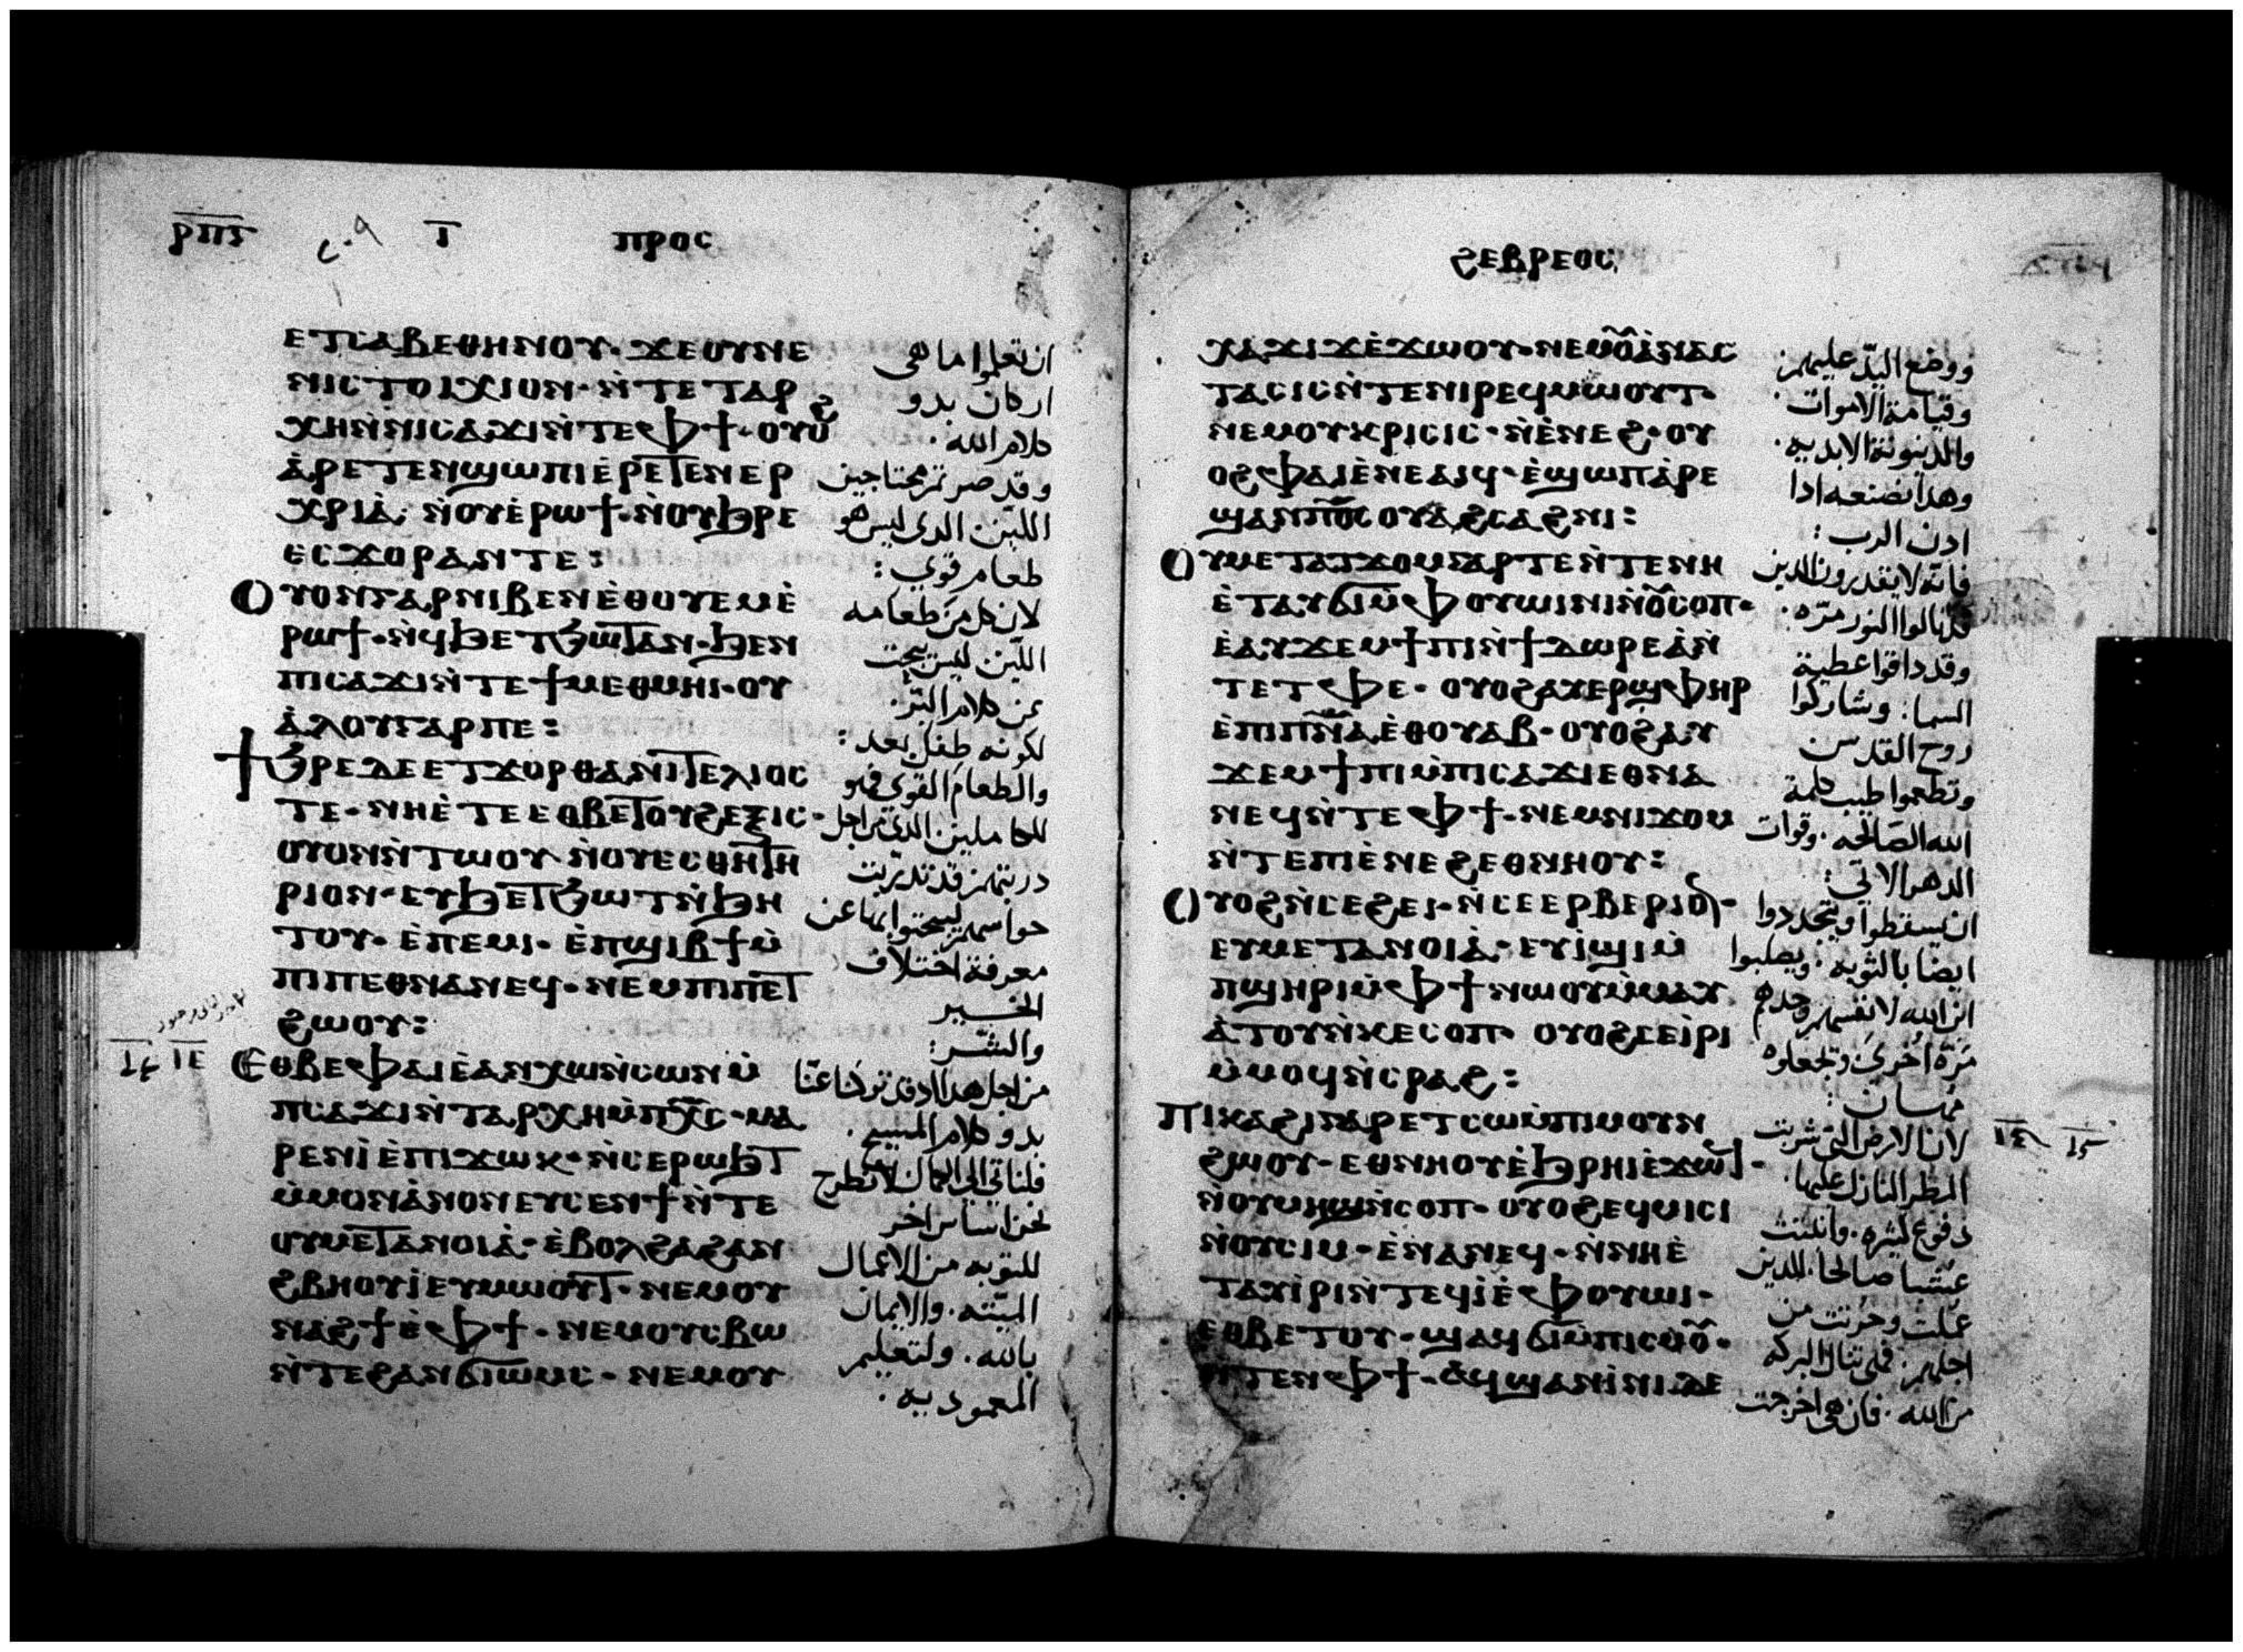 ⲣⲡⲋ ⲅ̅ ⲡⲣⲟⲥ
ⲉⲧⲥⲁⲃⲉⲑⲏⲛⲟⲩ· ϫⲉⲟⲩⲛⲉ
ⲛⲓⲥⲧⲟⲓⲭⲓⲟⲛ· ⲛ̀ⲧⲉⲧⲁⲣ
ⲭⲏⲛ̀ⲛⲓⲥⲁϫⲓⲛ̀ⲧⲉⲫϯ· ⲟⲩⲟϩ
ⲁ̀ⲣⲉⲧⲉⲛϣⲱⲡⲓⲉ̀ⲣⲉⲧⲉⲛⲉⲣ
ⲭⲣⲓⲁ̀· ⲛ̀ⲟⲩⲉ̀ⲣⲱϯ· ⲛ̀ⲟⲩϧⲣⲉ
ⲉⲥϫⲟⲣⲁⲛⲧⲉ:
ⲟⲩⲟⲛⲅⲁⲣⲛⲓⲃⲉⲛⲉ̀ⲑⲟⲩⲉⲙⲉ̀
ⲣⲱϯ· ⲛ̀ϥϧⲉⲧϧⲱⲧⲁⲛ· ϧⲉⲛ
ⲡⲓⲥⲁϫⲓⲛ̀ⲧⲉϯⲙⲉⲑⲙⲏⲓ· ⲟⲩ
ⲁ̀ⲗⲟⲩⲅⲁⲣⲡⲉ:
ϯϧⲣⲉⲇⲉⲉⲧϫⲟⲣⲑⲁⲛⲓⲧⲉⲗⲓⲟⲥ
ⲧⲉ· ⲛⲏⲉ̀ⲧⲉⲉⲑⲃⲉⲧⲟⲩϩⲉⲝⲓⲥ·
ⲟⲩⲟⲛⲛ̀ⲧⲱⲟⲩ ⲛ̀ⲟⲩⲉⲥⲑⲏⲧⲏ
ⲣⲓⲟⲛ· ⲉⲩϧⲉⲧϧⲱⲧⲛ̀ϧⲏ
ⲧⲟⲩ· ⲉ̀ⲡⲉⲙⲓ· ⲉ̀ⲡϣⲓⲃϯⲙ̀
ⲡⲓⲡⲉⲑⲛⲁⲛⲉϥ· ⲛⲉⲙⲡⲓⲡⲉⲧ
ϩⲱⲟⲩ:
ⲓⲉ ⲉⲑⲃⲉⲫⲁⲓⲉ̀ⲁⲛⲭⲱⲛ̀ⲥⲱⲛⲙ̀
ⲡⲥⲁϫⲓⲛ̀ⲧⲁⲣⲭⲏⲙ̀ⲡⲭ̅ⲥ̅· ⲙⲁ
ⲣⲉⲛⲓ̀ⲉ̀ⲡⲓϫⲱⲕ· ⲛ̀ⲥⲉⲣⲱϧⲧ
ⲙ̀ⲙⲟⲛⲁ̀ⲛⲟⲛⲉⲩⲥⲉⲛϯⲛ̀ⲧⲉ
ⲟⲩⲙⲉⲧⲁⲛⲟⲓⲁ̀· ⲉ̀ⲃⲟⲗϩⲁϩⲁⲛ
ϩⲃⲏⲟⲩⲓ̀ⲉⲩⲙⲱⲟⲩⲧ· ⲛⲉⲙⲟⲩ
ⲛⲁϩϯⲉ̀ⲫϯ· ⲛⲉⲙⲟⲩⲥⲃⲱ
ⲛ̀ⲧⲉϩⲁⲛϭⲓⲱⲙⲥ· ⲛⲉⲙⲟⲩ
ان تعلموا ما هي
اركان بدو
كلام الله·
وقد صرتم محتاجين
اللبن الدى ليس هو
طعام قوي:
لان كل من طعامه
اللبن ليس يبحث
عن كلام البر·
لكونه طفل بعد:
والطعام القوي فهو
للكاملين الذى من اجل
دربتهم قد تدربت
حواسهم ليبحتوا بها عن
معرفة اختلاف
الخير
والشر:
من اجل هدا اد قد تركنا عنا
بدو كلام المسيح·
فلناتي الى الكمال لا نطرح
نحن اساس اخر
للتوبه من الاعمال
الميته· والايمان
بالله· ولتعليم
المعموديه·
ϩⲉⲃⲣⲉⲟⲥ
ⲭⲁϫⲓϫⲉ̀ϫⲱⲟⲩ· ⲛⲉⲙⲟⲩⲁ̀ⲛⲁⲥ
ⲧⲁⲥⲓⲥⲛ̀ⲧⲉⲛⲓⲣⲉϥⲙⲱⲟⲩⲧ·
ⲛⲉⲙⲟⲩⲕⲣⲓⲥⲓⲥ· ⲛ̀ⲉ̀ⲛⲉϩ· ⲟⲩ
ⲟϩⲫⲁⲓⲉ̀ⲛⲉⲁⲓϥ· ⲉ̀ϣⲱⲡⲁ̀ⲣⲉ
ϣⲁⲛⲡ̅ⲟ̅ⲥ̅ⲟⲩⲁ̀ϩⲥⲁϩⲛⲓ:
ⲟⲩⲙⲉⲧⲁⲧϫⲟⲙⲅⲁⲣⲧⲉⲛ̀ⲧⲉⲛⲏ
ⲉ̀ⲧⲁⲩϭⲓⲙ̀ⲫⲟⲩⲱⲓⲛⲓⲛ̀ⲟⲩⲥⲟⲡ·
ⲉ̀ⲁⲩϫⲉⲙϯⲡⲓⲛ̀ϯⲇⲱⲣⲉⲁ̀ⲛ̀
ⲧⲉⲧⲫⲉ· ⲟⲩⲟϩⲁⲩⲉⲣϣⲫⲏⲣ
ⲉ̀ⲡⲓⲡ̅ⲛ̅ⲁ̅ⲉⲑⲟⲩⲁⲃ· ⲟⲩⲟϩⲁⲩ
ϫⲉⲙϯⲡⲓⲙ̀ⲡⲓⲥⲁϫⲓⲉⲑⲛⲁ
ⲛⲉϥⲛ̀ⲧⲉⲫϯ· ⲛⲉⲙⲛⲓϫⲟⲙ
ⲛ̀ⲧⲉⲡⲓⲉ̀ⲛⲉϩⲉⲑⲛⲏⲟⲩ:
ⲟⲩⲟϩⲛ̀ⲥⲉϩⲉⲓ· ⲛ̀ⲥⲉⲉⲣⲃⲉⲣⲓⲟⲛ·
ⲉⲩⲙⲉⲧⲁⲛⲟⲓⲁ̀· ⲉⲩⲓ̀ϣⲓⲙ̀
ⲡϣⲏⲣⲓⲙ̀ⲫϯⲛⲱⲟⲩⲙ̀ⲙⲁⲩ
ⲁ̀ⲧⲟⲩⲛ̀ⲕⲉⲥⲟⲡ· ⲟⲩⲟϩⲉⲉⲓ̀ⲣⲓ
ⲙ̀ⲙⲟϥⲛ̀ⲥⲣⲁϩ:
ⲡⲓⲕⲁϩⲓⲅⲁⲣⲉⲧⲥⲱⲙ̀ⲡⲓⲙⲟⲩⲛ
ϩⲱⲟⲩ· ⲉⲑⲛⲏⲟⲩⲉ̀ϧⲣⲏⲓⲉ̀ϫⲱϥ·
ⲛ̀ⲟⲩⲙⲏϣⲛ̀ⲥⲟⲡ· ⲟⲩⲟϩⲉϥⲙⲓⲥⲓ
ⲛ̀ⲟⲩⲥⲓⲙ· ⲉ̀ⲛⲁⲛⲉϥ· ⲛ̀ⲛⲏⲉ̀
ⲧⲁⲩⲓ̀ⲣⲓⲛ̀ⲧⲉϥⲓⲉ̀ⲫⲟⲩⲱⲓ·
ⲉⲑⲃⲏⲧⲟⲩ· ϣⲁϥϭⲓⲙ̀ⲡⲓⲥⲙⲟⲩ·
ⲛ̀ⲧⲉⲛⲫϯ· ⲁϥϣⲁⲛⲓ̀ⲛⲓⲇⲉ
ووضع اليد عليهم
وقيامة الاموات·
والدينونة الابديه·
وهدا نصنعه ادا
ادن الرب:
فانه لا يقدرون الدين
قد نالوا النور مره:
وقد داقوا عطية
السما: وشاركوا
روح القدس
وتطعموا طيب كلمة
الله الصالحه· وقوات
الدهر الاتي:
ان يسقطوا ويتجددوا
ايضا بالتوبه: ويصلبوا
ابن الله لانفسهم وحدهم
مرة اخرى وتجعلوه
مهان:
لان الارض التي شربت
المطر النازل عليها·
دفوع كثيره· وانبتت
عشبا صالحا للدين
عملت وحرثت من
اجلهم: فهي تنال البركه
من الله· فان هي اخرجت